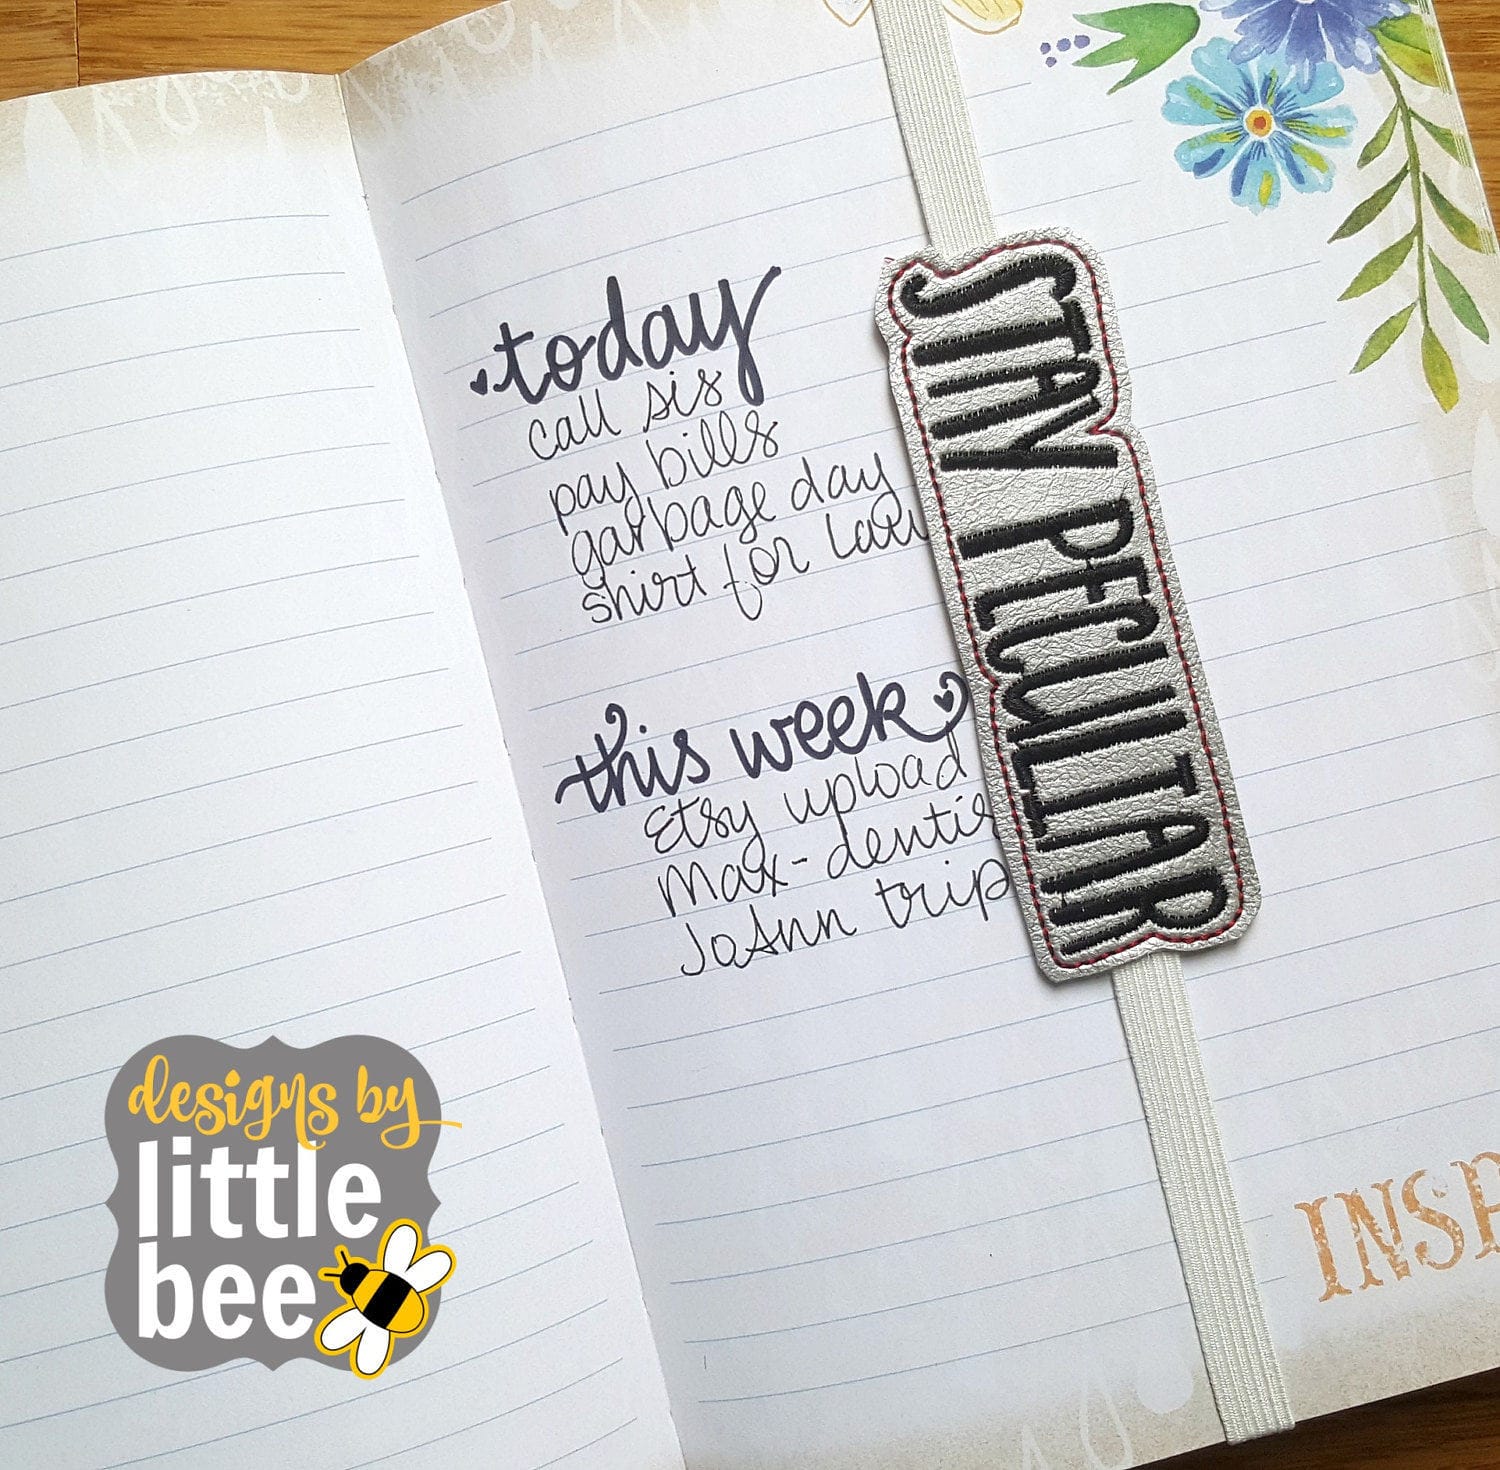 today
call sis
pay bills
garbage day
shirt for
this week
Etsy upload
Max-
JoAnn trip
STAY PECULIAR
designs by
little
bee